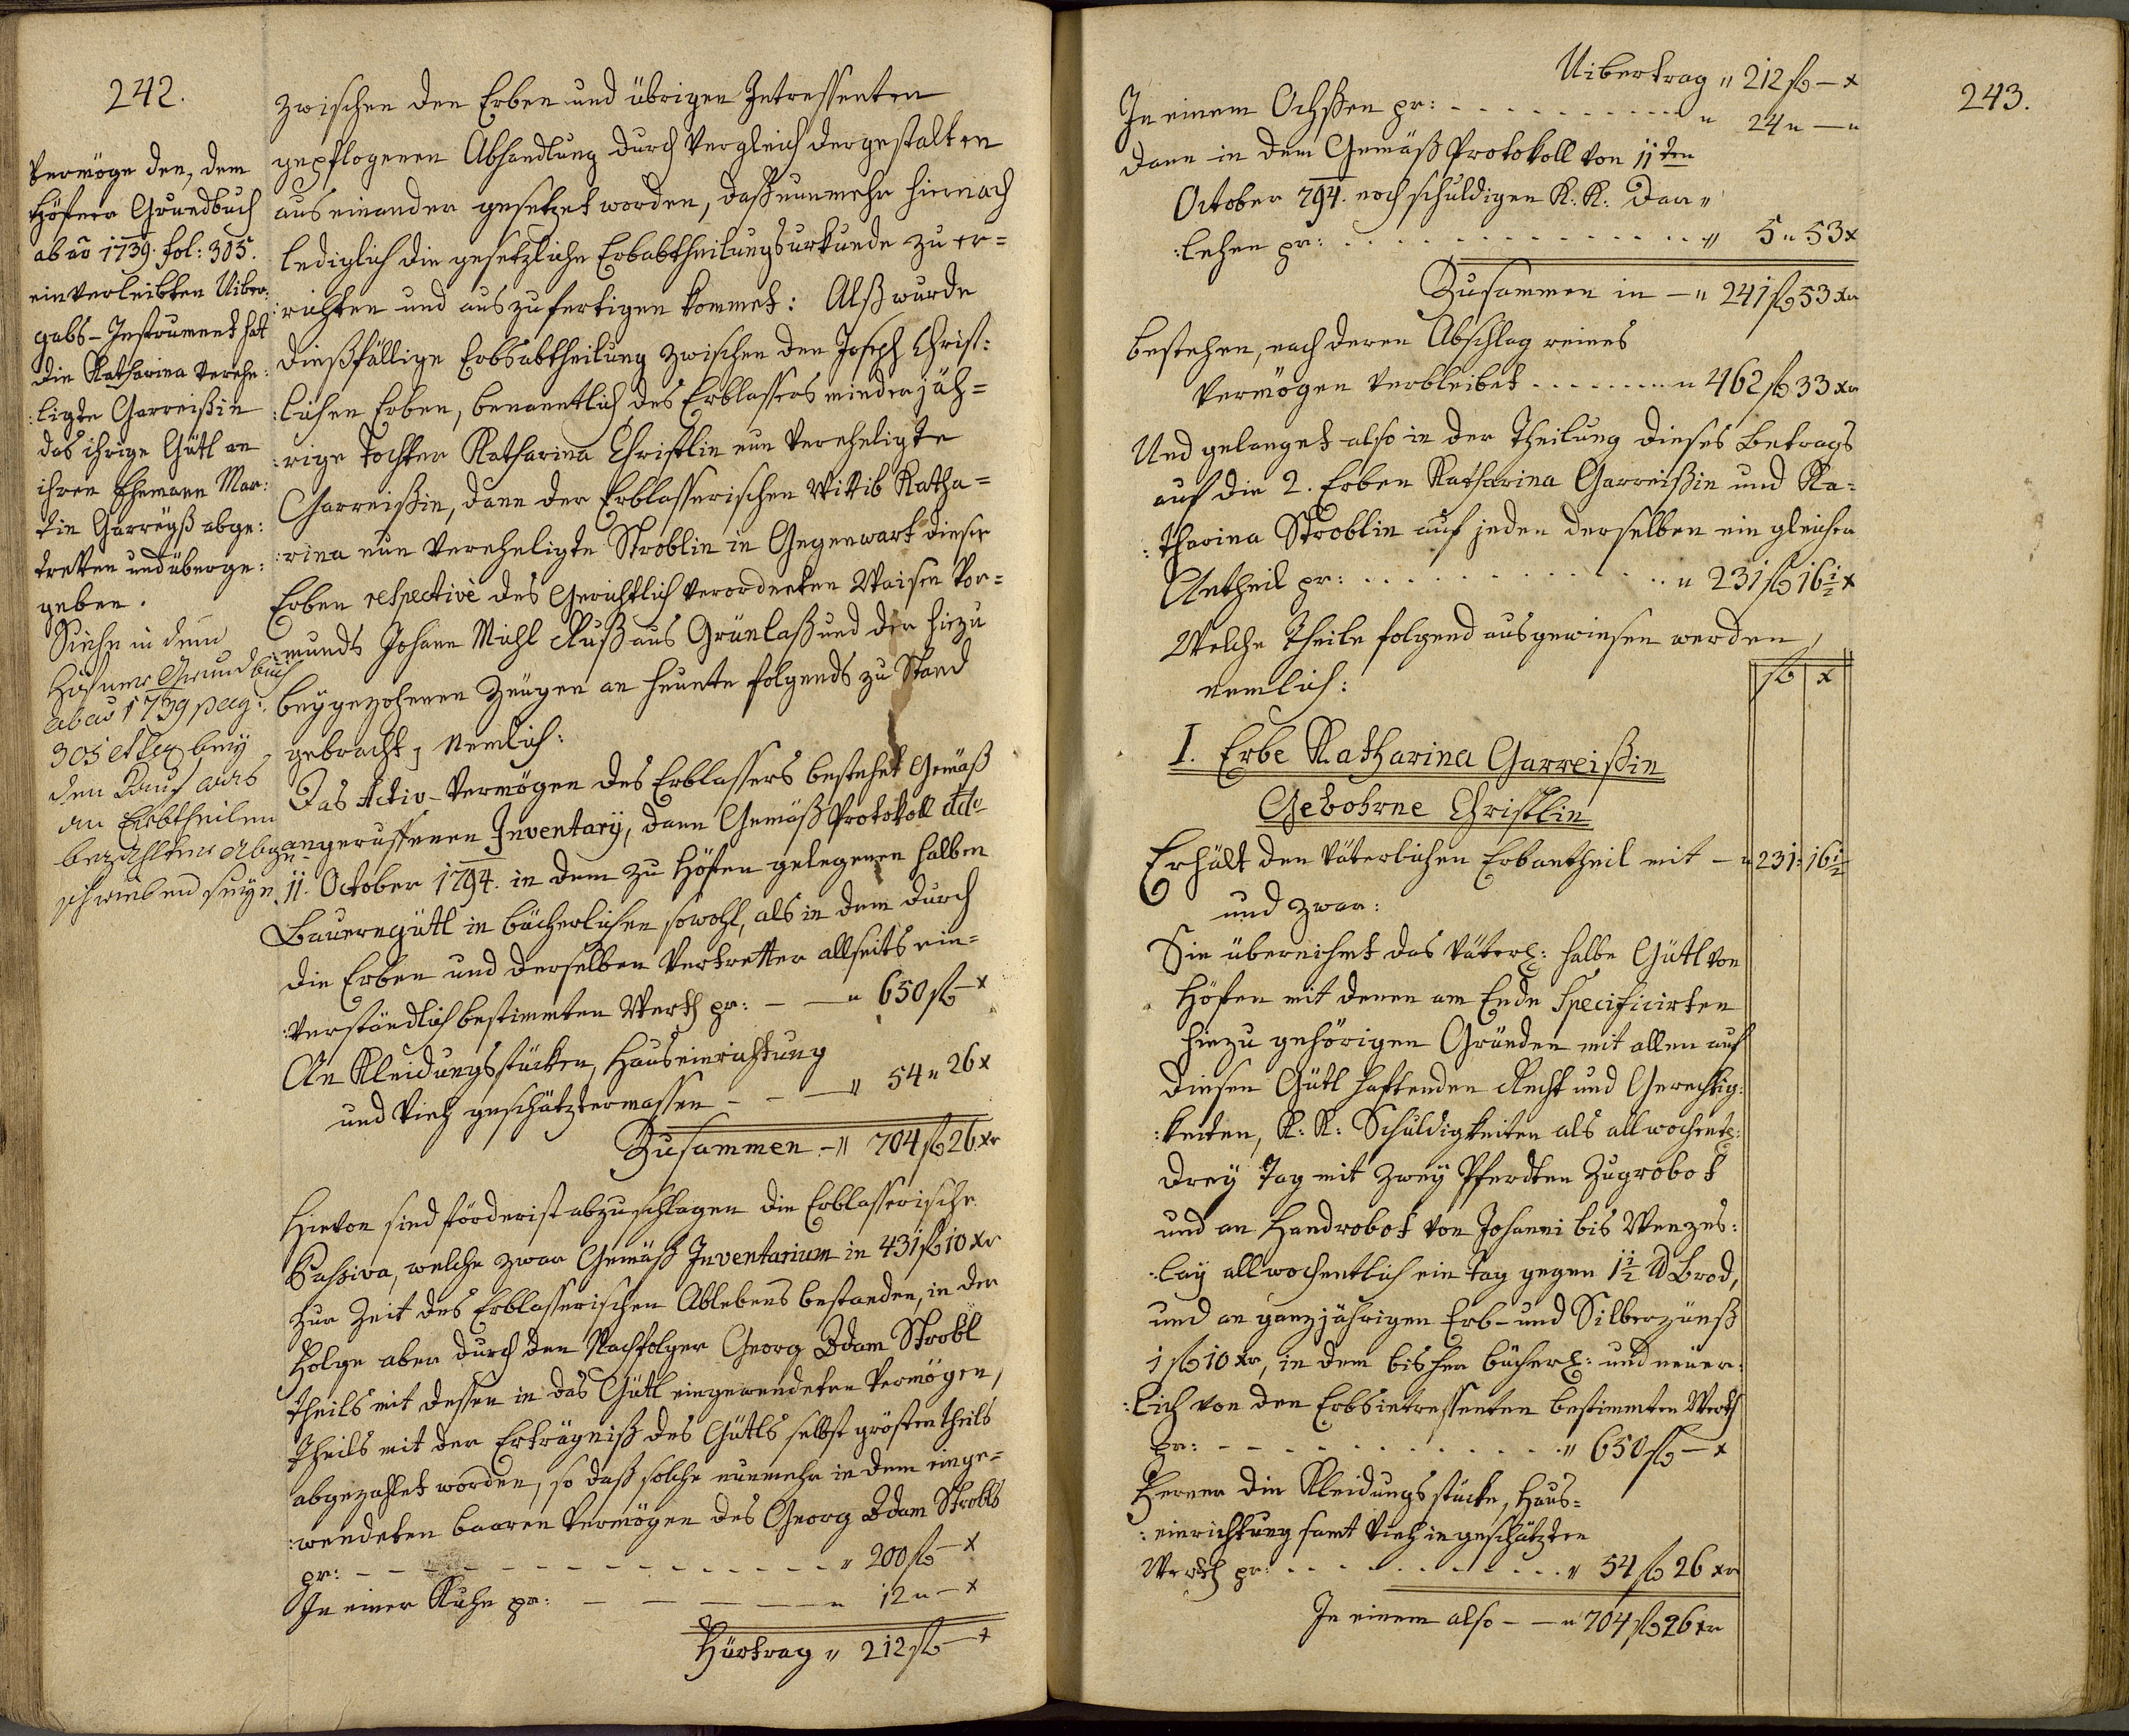 242.
Vermöge den, dem
Höfner Grundbuch
ab aō 1739. fol: 305.
einverleibten Uiber:
gabs-Instrument hat
die Katharina verehe:
:ligte Garreißin
das ihrige Gütl an
ihren Ehemann Mar:
tin Garreyß abge:
tretten und überge:
geben.
Siehe in dem
Höfner Grundbuch
ab aō 1739 pag:
305 et seq bey
den Kauf aus
an Erbtheilen
bezahlter abge
schrieben seyn
zwischen den Erben und übrigen Intressenten
gepflogenen Abhandlung durch Vergleich dergestalten
aus einander gesetzet worden, daß nunmehr hiernach
lediglich die gesetzliche Erbabtheilungsurkunde zu er=
:richten und auszufertigen kommet: Alß wurde
dießfällige Erbsabtheilung zwischen den Joseph Christ:
:lischen Erben, benanntlich des Erblassers minderjäh=
:rige Tochter Katharina Christlin nun verehligte
Garreißin, dann der Erblasserischen Wittib Katha=
:rina nun verehligte Stroblin in Gegenwart dieser
Erben respectivè des Gerichtlich verordneten Waisen Vor=
:munds Johann Michl Ruß aus Grünlaß und der hiezu
beygezohenen Zeugen an heunte folgends zu Stand
gebracht, nemlich:
Das Activ-Vermögen des Erblassers bestehet Gemäß
angeruffenen Inventarÿ, dann Gemäß Protokoll ddo
11. October 1794. in dem zu Höfen gelegenen halben
Bauerngütl in bücherlichen sowohl, als in dem durch
die Erben und derselben Vertretter allseits ein=
:verständlich bestimmten Werth pr: — — „ 650 fl — x
An Kleidungsstücken, Hauseinrichtung
und Vieh geschätztermassen - - — „ 54 „ 26 x
Zusammen - „ 704 fl 26 xr
Hievon sind förderist abzuschlagen die Erblasserische
Passiva, welche zwar Gemäß Inventarium in 431 fl 10 xr
zur Zeit des Erblasserischen Ablebens bestanden, in der
Folge aber durch den Nachfolger Georg Adam Strobl
theils mit dessen in das Gütl eingewendeten Vermögen,
theils mit der Erträgniß des Gütls selbst gröstentheils
abgezahlet worden, so daß solche nunmehr in dem einge=
:wendeten baaren Vermögen des Georg Adam Strobls
pr: - - - - - - - - - - - - „ 200 fl — x
In einer Kuhe pr: — — — — „ 12 „ — x
Fürtrag „ 212 fl — x
243.
Uibertrag „ 212 fl — x
In einem Ochßen pr: - - - - - - - - - „ 24 „ — „
dann in dem Gemäß Protokoll von 11ten
October 794. noch schuldigen K: K: Dar„
:lehen pr: . . . . . . . . . . . . „ 5 „ 53 x
Zusammen in — „ 241 fl 53 xr
bestehen, nach deren Abschlag reines
Vermögen verbleibet - - - - - - - „ 462 fl 33 xr
Und gelanget also in der Theilung dieses Betrags
auf die 2. Erben Katharina Garreißin und Ka=
:tharina Stroblin auf jeden derselben ein gleicher
Antheil pr: . . . . . . . . . . . „ 231 fl 16 1/2 x
Welche Theile folgend ausgewiesen werden,
nemlich:
fl x
I. Erbe Katharina Garreißin
Gebohrne Christlin
Erhält den väterlichen Erbantheil mit — „ 231 „ 16 1/2
und zwar:
Sie übernihmt das väterl: halbe Gütl von
Höfen mit denen am Ende Specificirten
hiezu gehörigen Gründen mit allen auf
diesen Gütl haftenden Recht und Gerechtig:
:keiten, K: K: Schuldigkeiten als allwochentl:
drey Tag mit zwey Pferdten Zugrobot
und an Handrobot von Johanni bis Wenzes:
:lay allwochentlich ein Tag gegen 1 1/2 ℔ Brod,
und an ganzjährigen Erb- und Silberzünß
1 fl 10 xr, in dem bisher bücherl: und neuer:
:lich von den Erbsintressenten bestimmten Werth
pr: - - - - - - - - - - - - „ 650 fl — x
Ferner die Kleidungsstücke, Haus=
:einrichtung samt Vieh in geschätzten
Werth pr: - - - - - - - - - - „ 54 fl 26 xr
In einem also - — „ 704 fl 26 xr